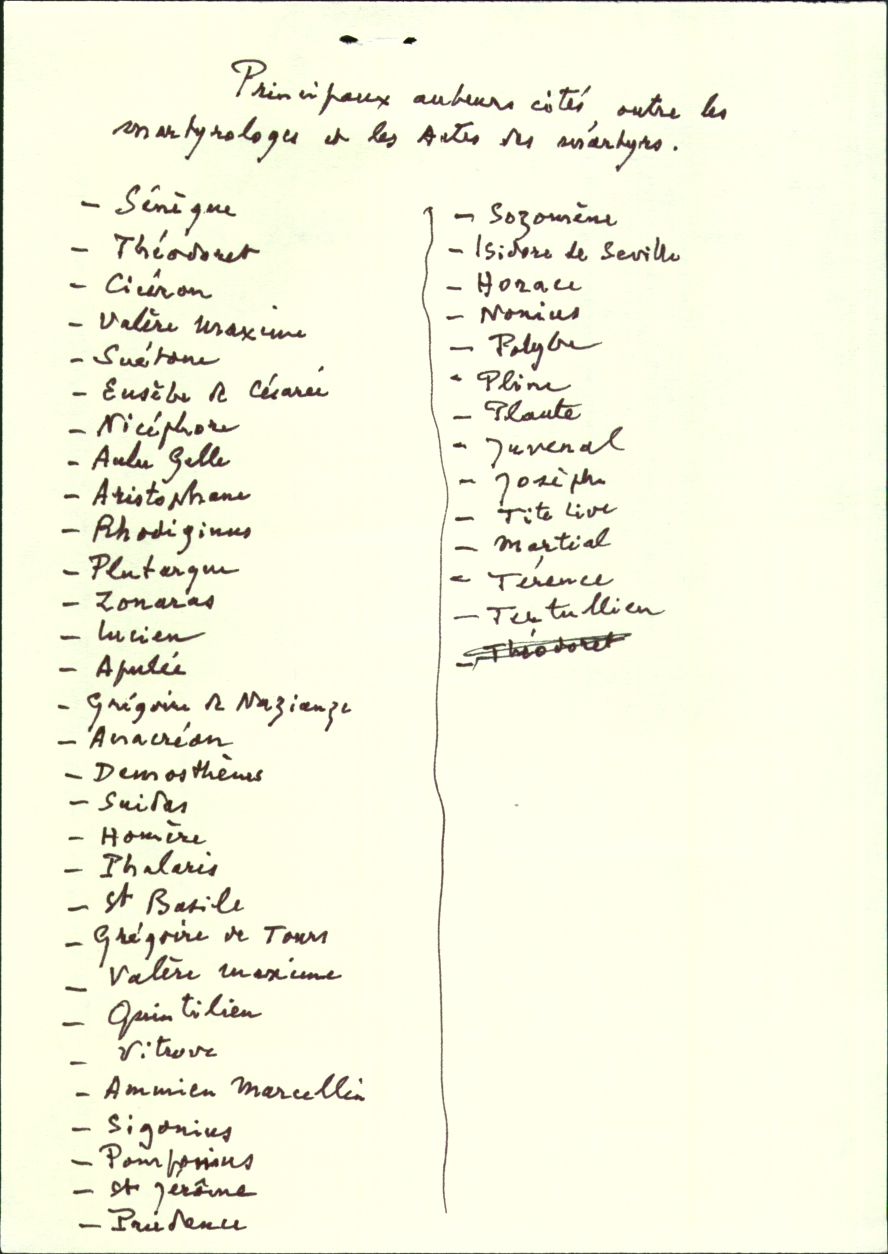 Principaux auteurs cités, outre les
martyrologes et les Actes des martyrs.
- Sénèque
- Théodoret
- Cicéron
- Valère Maxime
- Suétone
- Eusèbe de Césarée
- Nicéphore
- Aulu Gelle
- Aristophane
- Rhodiginus
- Plutarque
- Zonaras
- Lucien
- Apulée
- Grégoire de Nazianze
- Anacréon
- Demosthènes
- Suidas
- Homère
- Phalaris
- St Basile
- Grégoire de Tours
- Valère Maxime
- Quintilien
- Vitrove
- Ammien Marcellin
- Sigonius
- Pomponius
- St Jérôme
- Prudence
- Sozomène
- Isidore de Seville
- Horace
- Nonius
- Polybe
- Pline
- Plaute
- Juvenal
- Josèphe
- Tite Live
- Martial
- Térence
- Tertullien
- Théodoret